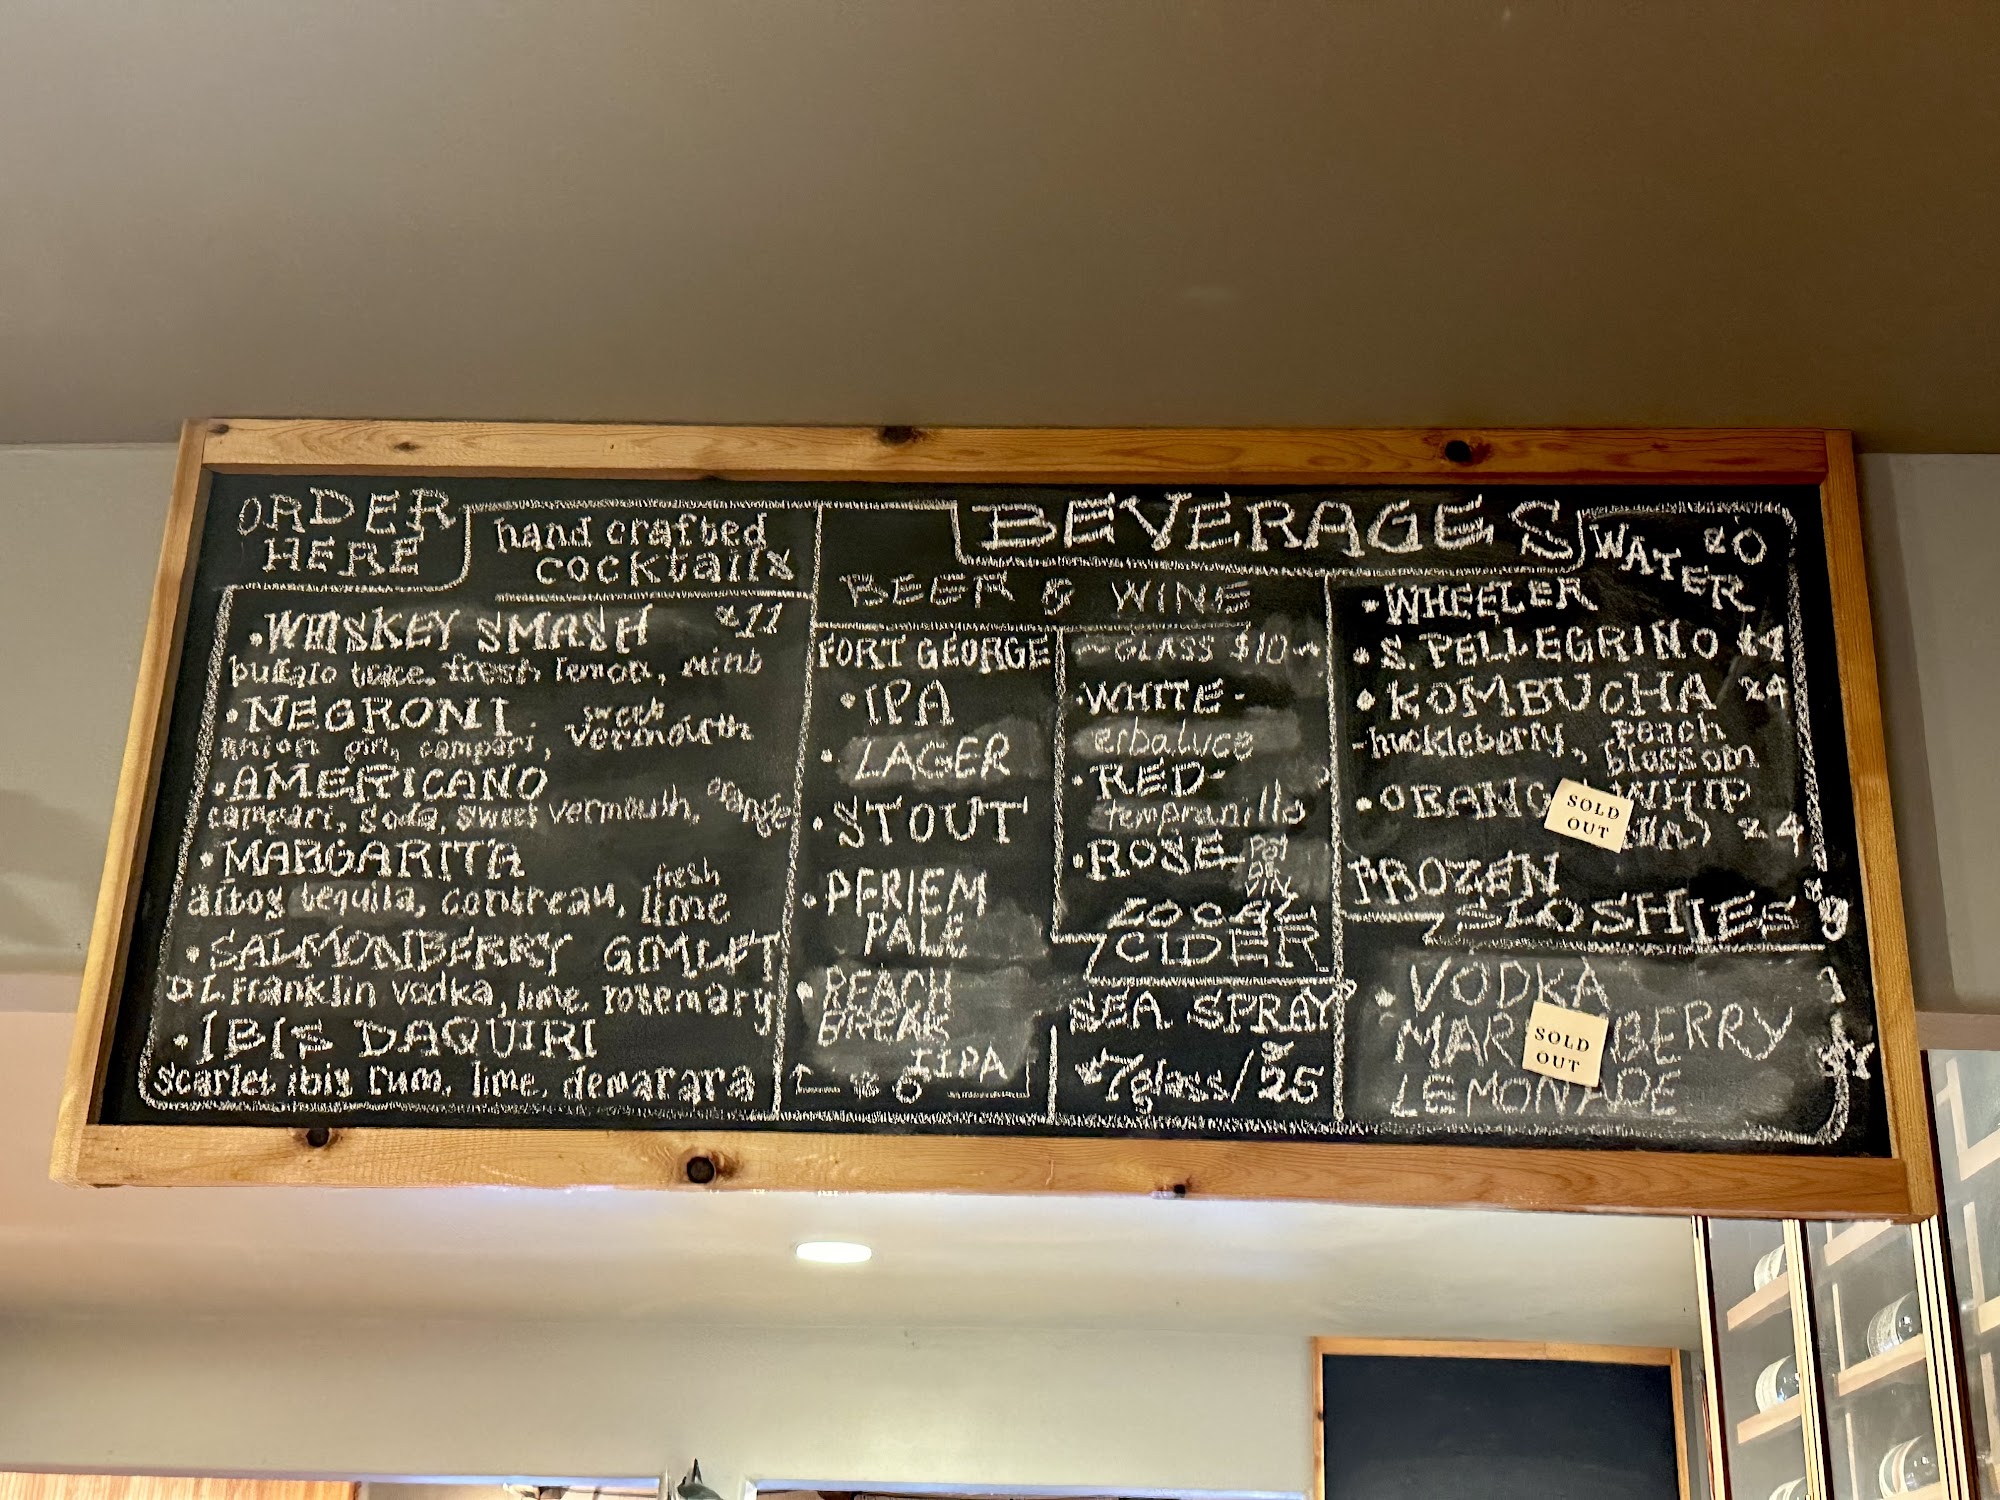 ORDER
HERE
hand crafted
cocktails
• WHISKEY SMASH $11
buffalo trace, fresh lemon, mint
• NEGRONI
gin, campari, sweet
vermouth
• AMERICANO
campari, soda, sweet vermouth, orange
• MARGARITA
altos tequila, contreau, fresh
lime
• SALMONBERRY GIMLET
D.L. Franklin vodka, lime, rosemary
• IBIS DAQUIRI
Scarlet ibis rum, lime, demarara
BEVERAGES
BEER & WINE
FORT GEORGE
• IPA
• LAGER
• STOUT
• PFRIEM
PALE
• PEACH
BREAK
IIPA
6
~ GLASS $10 ~
• WHITE -
erbaluce
• RED -
tempranillo
• ROSE
LOCAL
CIDER
SEA SPRAY
$7 glass / $25
WATER $0
• WHEELER
• S. PELLEGRINO $4
• KOMBUCHA $4
- huckleberry, peach
blossom
• OBANG WHIP
$4
SOLD
OUT
FROZEN
SLOSHIES
• VODKA
BERRY
LEMONADE
SOLD
OUT